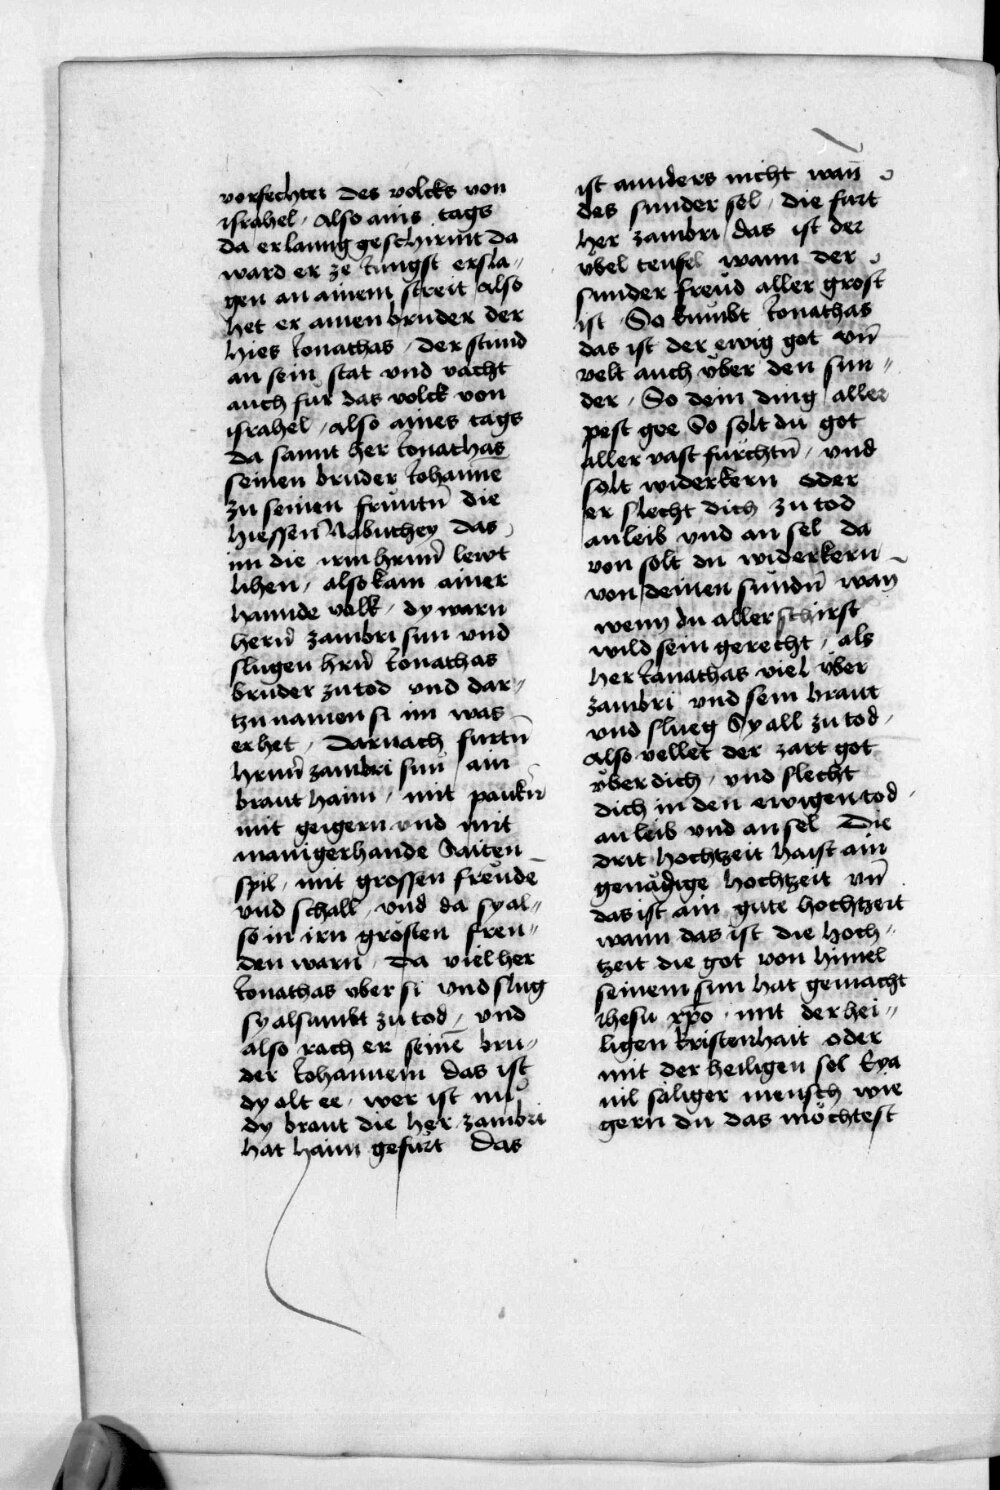 vorfechter des volcks von
israhel / Also ains tags
da er lanng geschirmt da
ward er ze Jungst ersla〃
gen an ainem streit / Also
het er ainen bruder der
hies Jonathas / der stund
an sein stat vnd vacht
auch fur das volck von
israhel / also aines tags
da sannt her Jonathas
seinen bruder Johanne
zu seinen fruntn̄ die
hiessen Nabuthey das
im die irn hrnn̄ lewt
lihen / also kam ainer
hannde volk / dy warn
hern̄ zambri sun vnd
slugen hrn̄ Jonathas
bruder zu tod vnd dar〃
tzu namen si im was
er het / Darnach furtn̄
hrnn̄ zambri sun / ain
braut haim / mit paukn̄
mit geigern vnd mit
manigerhande Saiten
spil / mit grossen freude
vnd schall / vnd da sy al〃
so in irn grosten freu〃
den warn / Da viel her
Jonathas vber si vnd slug
sy alsambt zu tod / vnd
also rach er seinē bru〃
der Johannem das ist
dy alt ee / wer ist nu
dy braut die her zambri
hat haim gefurt Das
ist annders nicht wan̄
des sunder sel / die furt
her zambri / das ist der
vbel teufel wann der
sunder freud aller grost
ist / So kumbt Jonathas
das ist der ewig got vn̄
velt auch vber den sun〃
der / So dein ding / aller
pest gee So solt du got
aller vast furchtn̄ / vnd
solt widerkern oder
er slecht dich zu tod
an leib vnd an sel da
von solt du widerkern
von deinen sundn̄ wan̄
wenn du aller schirst
wild sein gerecht / als
her Janathas viel vber
zambri vnd sein braut
vnd slueg Sy all zu tod /
also vellet der zart got
vber dich / vnd slecht
dich in den ewigen tod /
an leib vnd an sel Die
drit hochtzeit haist ain
genadige hochtzeit vn̄
das ist ain gute hochtzeit
wann das ist die hoch〃
tzeit die got von himel
seinem sun hat gemacht
ihesu xp̄o / mit der hei〃
ligen kristenhait oder
mit der heiligen sel Eya
nil saliger mensch wie
gern du das mochtest